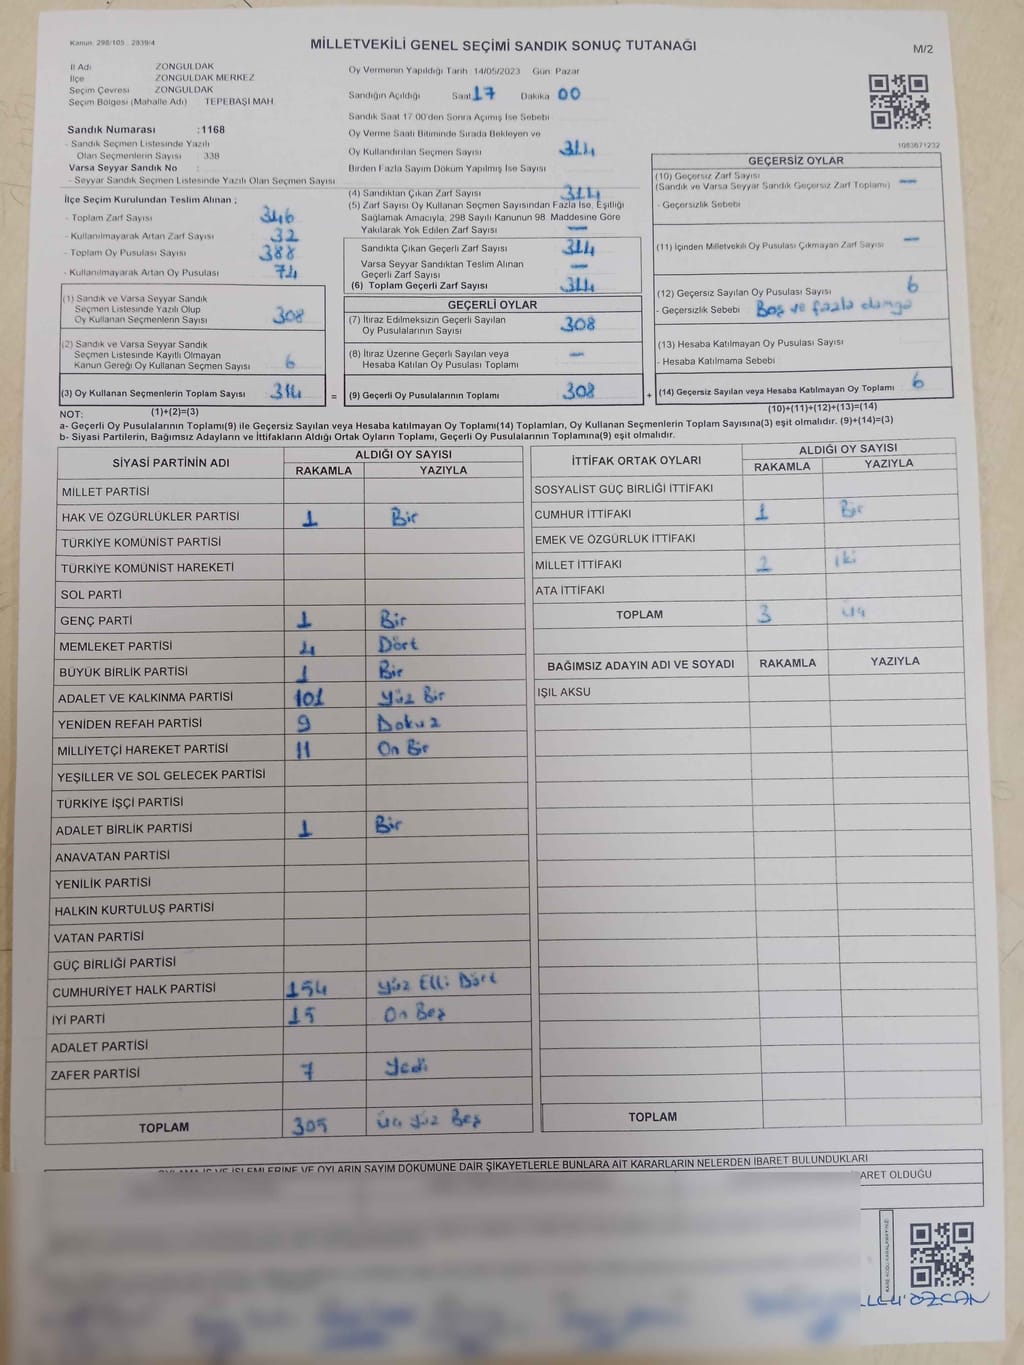 Kanun: 298/105 , 2839/4
MİLLETVEKİLİ GENEL SEÇİMİ SANDIK SONUÇ TUTANAĞI
M/2
İl Adı ZONGULDAK
İlçe ZONGULDAK MERKEZ
Seçim Çevresi ZONGULDAK
Seçim Bölgesi (Mahalle Adı) TEPEBAŞI MAH.
Sandık Numarası :1168
- Sandık Seçmen Listesinde Yazılı
Olan Seçmenlerin Sayısı : 338
Varsa Seyyar Sandık No :
- Seyyar Sandık Seçmen Listesinde Yazılı Olan Seçmen Sayısı
İlçe Seçim Kurulundan Teslim Alınan ;
- Toplam Zarf Sayısı 346
- Kullanılmayarak Artan Zarf Sayısı 32
- Toplam Oy Pusulası Sayısı 388
- Kullanılmayarak Artan Oy Pusulası 74
(1) Sandık ve Varsa Seyyar Sandık
Seçmen Listesinde Yazılı Olup
Oy Kullanan Seçmenlerin Sayısı 308
(2) Sandık ve Varsa Seyyar Sandık
Seçmen Listesinde Kayıtlı Olmayan
Kanun Gereği Oy Kullanan Seçmen Sayısı 6
(3) Oy Kullanan Seçmenlerin Toplam Sayısı 314
(1)+(2)=(3)
Oy Vermenin Yapıldığı Tarih 14/05/2023 Gün Pazar
Sandığın Açıldığı Saat 17 Dakika 00
Sandık Saat 17:00'den Sonra Açılmış İse Sebebi
Oy Verme Saati Bitiminde Sırada Bekleyen ve
Oy Kullandırılan Seçmen Sayısı 314
Birden Fazla Sayım Döküm Yapılmış İse Sayısı
(4) Sandıktan Çıkan Zarf Sayısı 314
(5) Zarf Sayısı Oy Kullanan Seçmen Sayısından Fazla İse, Eşitliği
Sağlamak Amacıyla, 298 Sayılı Kanunun 98. Maddesine Göre
Yakılarak Yok Edilen Zarf Sayısı —
Sandıkta Çıkan Geçerli Zarf Sayısı 314
Varsa Seyyar Sandıktan Teslim Alınan
Geçerli Zarf Sayısı —
(6) Toplam Geçerli Zarf Sayısı 314
GEÇERLİ OYLAR
(7) İtiraz Edilmeksizin Geçerli Sayılan
Oy Pusulalarının Sayısı 308
(8) İtiraz Üzerine Geçerli Sayılan veya
Hesaba Katılan Oy Pusulası Toplamı —
= (9) Geçerli Oy Pusulalarının Toplamı 308 +
1083671232
GEÇERSİZ OYLAR
(10) Geçersiz Zarf Sayısı —
(Sandık ve Varsa Seyyar Sandık Geçersiz Zarf Toplamı)
- Geçersizlik Sebebi
(11) İçinden Milletvekili Oy Pusulası Çıkmayan Zarf Sayısı —
(12) Geçersiz Sayılan Oy Pusulası Sayısı 6
- Geçersizlik Sebebi Boş ve fazla damga
(13) Hesaba Katılmayan Oy Pusulası Sayısı
- Hesaba Katılmama Sebebi
(14) Geçersiz Sayılan veya Hesaba Katılmayan Oy Toplamı 6
(10)+(11)+(12)+(13)=(14)
NOT:
a- Geçerli Oy Pusulalarının Toplamı(9) ile Geçersiz Sayılan veya Hesaba katılmayan Oy Toplamı(14) Toplamları, Oy Kullanan Seçmenlerin Toplam Sayısına(3) eşit olmalıdır. (9)+(14)=(3)
b- Siyasi Partilerin, Bağımsız Adayların ve İttifakların Aldığı Ortak Oyların Toplamı, Geçerli Oy Pusulalarının Toplamına(9) eşit olmalıdır.
SİYASİ PARTİNİN ADI ALDIĞI OY SAYISI
RAKAMLA YAZIYLA
MİLLET PARTİSİ
HAK VE ÖZGÜRLÜKLER PARTİSİ 1 Bir
TÜRKİYE KOMÜNİST PARTİSİ
TÜRKİYE KOMÜNİST HAREKETİ
SOL PARTİ
GENÇ PARTİ 1 Bir
MEMLEKET PARTİSİ 4 Dört
BÜYÜK BİRLİK PARTİSİ 1 Bir
ADALET VE KALKINMA PARTİSİ 101 Yüz Bir
YENİDEN REFAH PARTİSİ 9 Dokuz
MİLLİYETÇİ HAREKET PARTİSİ 11 On Bir
YEŞİLLER VE SOL GELECEK PARTİSİ
TÜRKİYE İŞÇİ PARTİSİ
ADALET BİRLİK PARTİSİ 1 Bir
ANAVATAN PARTİSİ
YENİLİK PARTİSİ
HALKIN KURTULUŞ PARTİSİ
VATAN PARTİSİ
GÜÇ BİRLİĞİ PARTİSİ
CUMHURİYET HALK PARTİSİ 154 Yüz Elli Dört
İYİ PARTİ 15 On Beş
ADALET PARTİSİ
ZAFER PARTİSİ 7 Yedi
TOPLAM 305 Üç Yüz Beş
İTTİFAK ORTAK OYLARI ALDIĞI OY SAYISI
RAKAMLA YAZIYLA
SOSYALİST GÜÇ BİRLİĞİ İTTİFAKI
CUMHUR İTTİFAKI 1 Bir
EMEK VE ÖZGÜRLÜK İTTİFAKI
MİLLET İTTİFAKI 2 iki
ATA İTTİFAKI
TOPLAM 3 üç
BAĞIMSIZ ADAYIN ADI VE SOYADI RAKAMLA YAZIYLA
IŞIL AKSU
TOPLAM
OYLAMA İŞ VE İŞLEMLERİNE VE OYLARIN SAYIM DÖKÜMÜNE DAİR ŞİKAYETLERLE BUNLARA AİT KARARLARIN NELERDEN İBARET BULUNDUKLARI
BARET OLDUĞU
ÖZCAN